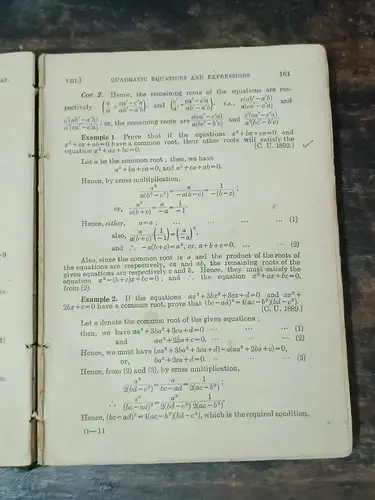 VIII.] QUADRATIC EQUATIONS AND EXPRESSIONS 161
Cor. 2. Hence, the remaining roots of the equations are res-
pectively (c/a ÷ (ca'-c'a)/(ab'-a'b)), and (c'/a' ÷ (ca'-c'a)/(ab'-a'b)), i.e., c(ab'-a'b)/a(ca'-c'a) and
c'(ab'-a'b)/a'(ca'-c'a); or, the remaining roots are
Example 1. Prove that if the equations x²+bx+ca=0 and
x²+cx+ab=0 have a common root, their other roots will satisfy the
equation x²+ax+bc=0. [C. U. 1892.]
Let α be the common root; then, we have
α²+bα+ca=0, and α²+cα+ab=0.
Hence, by cross multiplication,
α²/a(b²-c²) = α/-a(b-c) = 1/-(b-c);
or, α²/a(b+c) = α/-a = 1/-1.
Hence, either, α=a; ... ... ... (1)
also, α²/a(b+c) (1/-1) = (α/-a)²,
and ∴ -a(b+c)=a², or, a+b+c=0. ... ... (2)
Also, since the common root is a and the product of the roots of
the equations are respectively, ca and ab, the remaining roots of the
given equations are respectively c and b. Hence, they must satisfy the
equation x²-(b+c)x+bc=0, and ∴ the equation x²+ax+bc=0,
from (2).
Example 2. If the equations ax³+3bx²+3cx+d=0 and ax²+
2bx+c=0 have a common root, prove that (bc-ad)²=4(ac-b²)(bd-c²).
[C. U. 1889.]
Let α denote the common root of the given equations;
then, we have aα³+3bα²+3cα+d=0 ... ... ... (1)
and aα²+2bα+c=0. ... ... (2)
Hence, we must have (aα³+3bα²+3cα+d)-α(aα²+2bα+c)=0,
or, bα²+2cα+d=0. ... ... (3)
Hence, from (2) and (3), by cross multiplication,
α²/2(bd-c²) = α/bc-ad = 1/2(ac-b²);
∴ α²/(bc-ad)² = α²/2(bd-c²) 1/2(ac-b²).
Hence, (bc-ad)²=4(ac-b²)(bd-c²), which is the required condition.
II—11